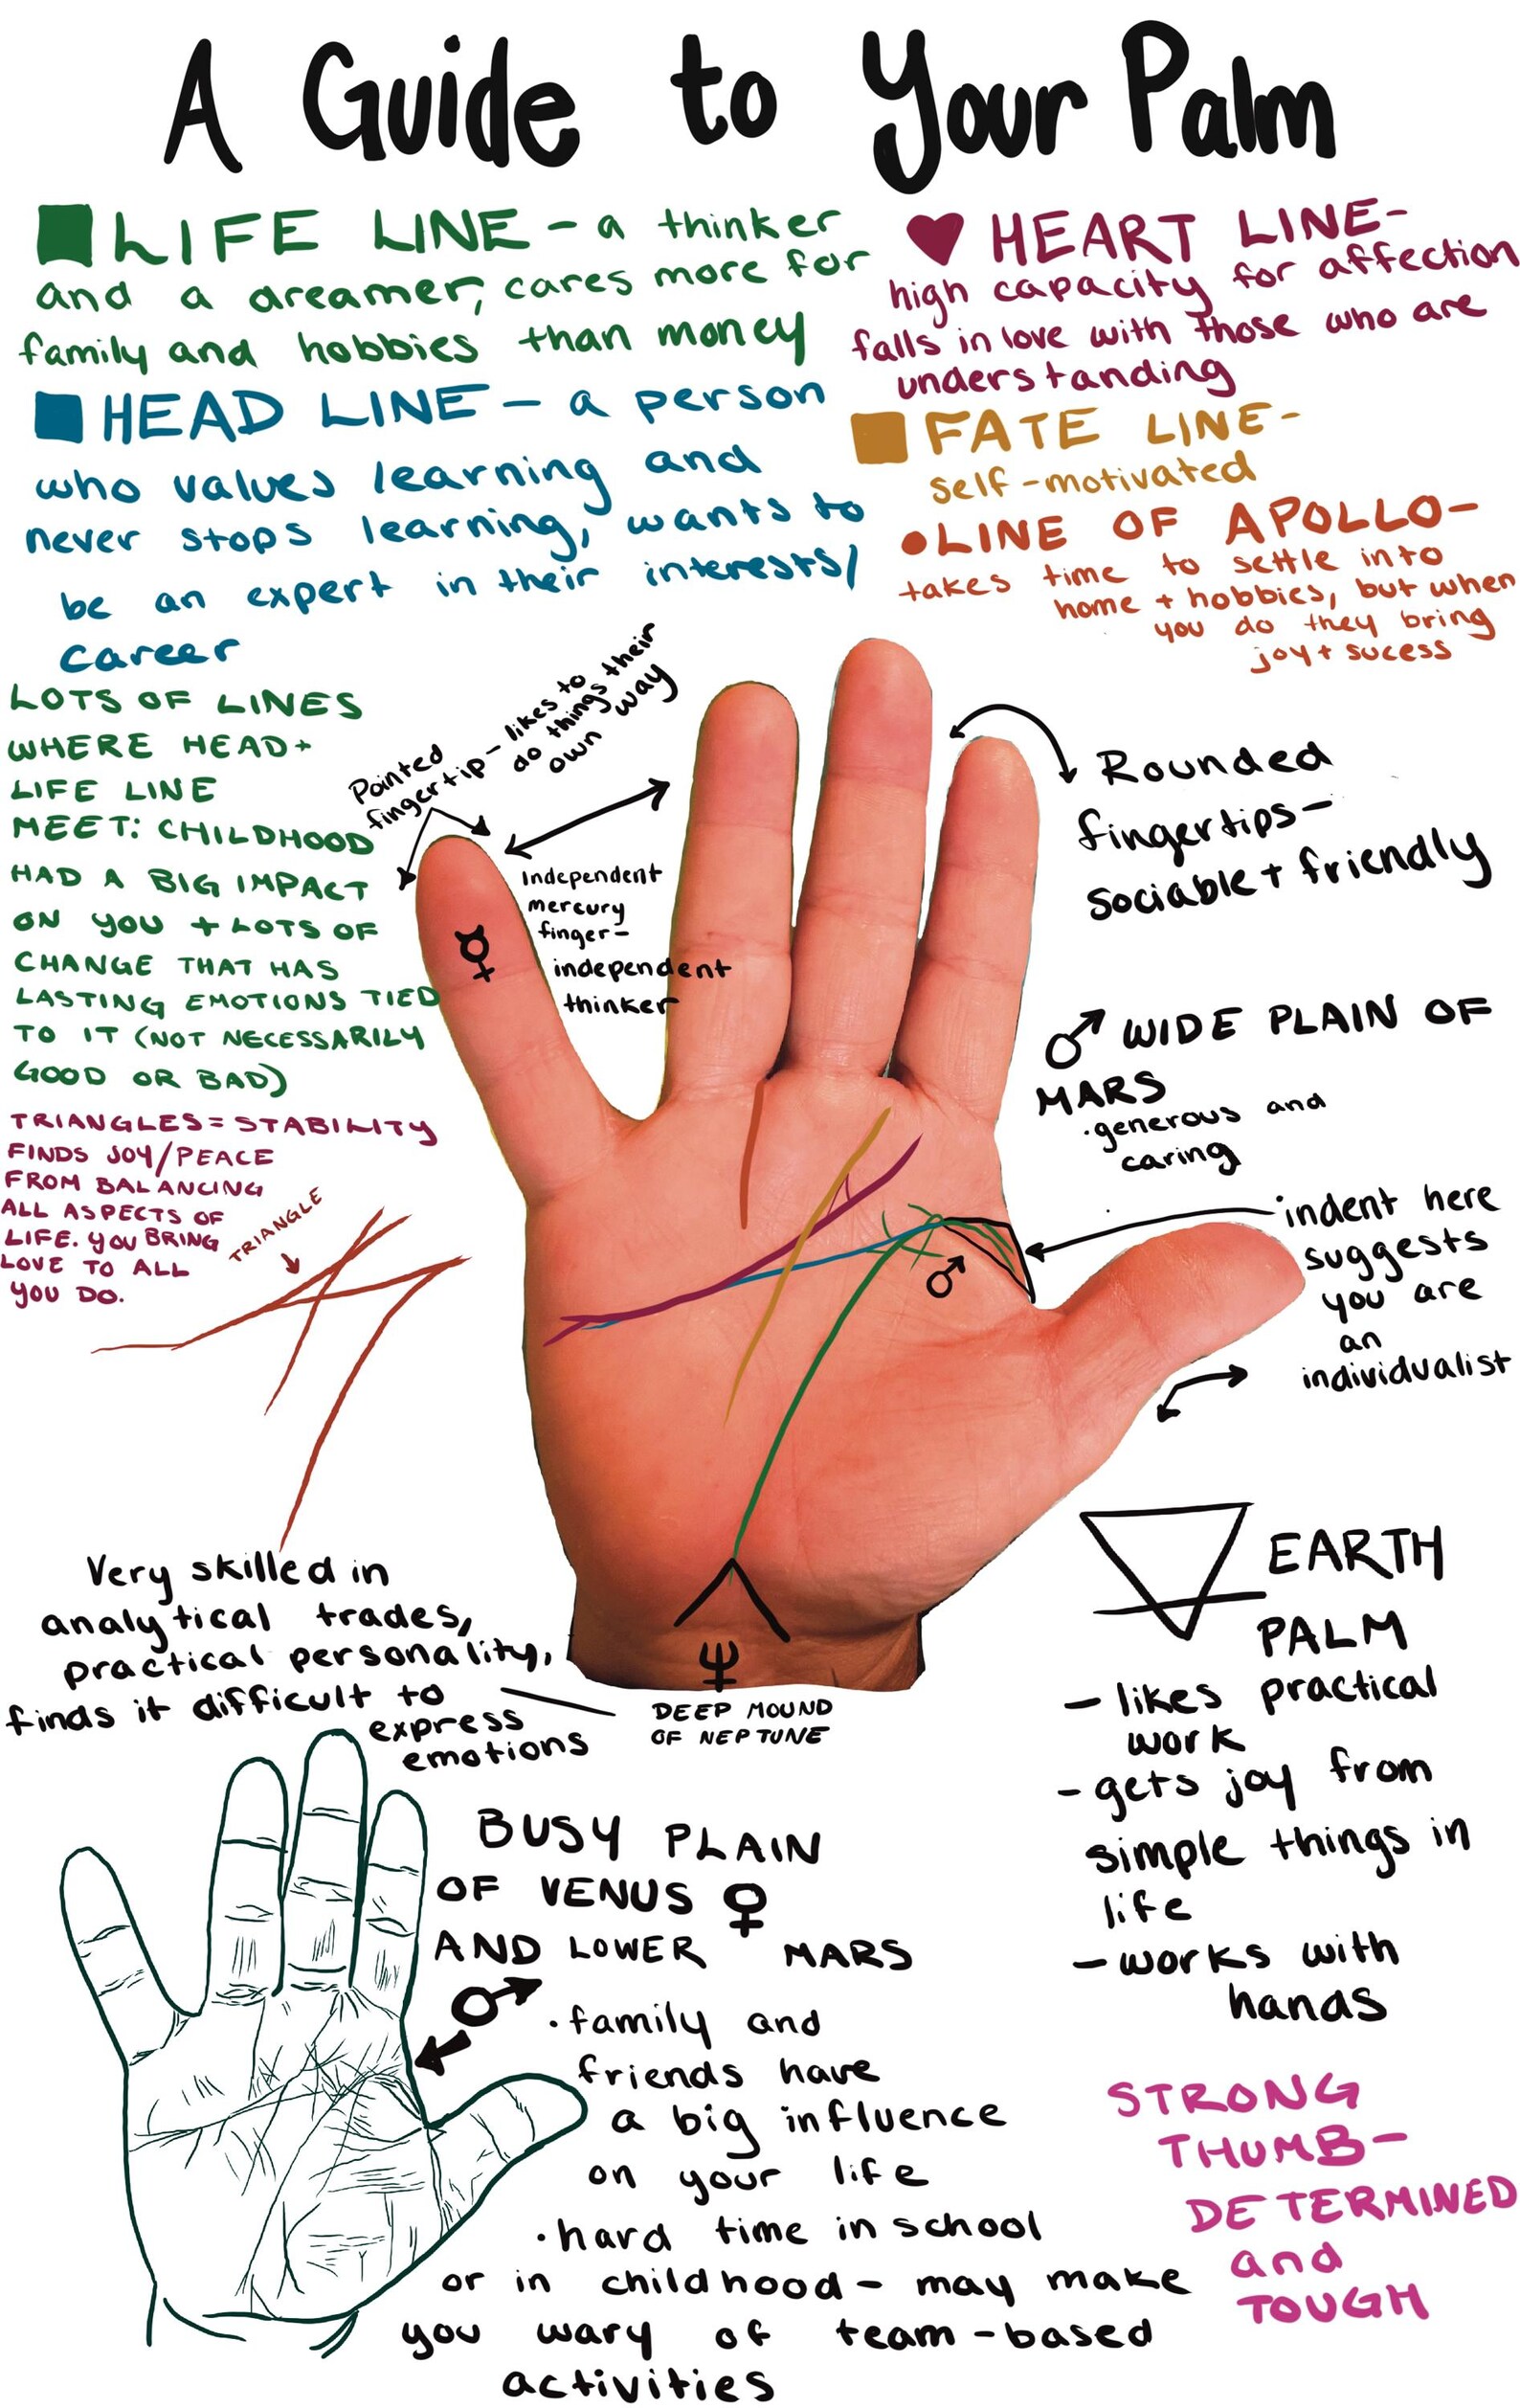 A Guide to Your Palm
LIFE LINE - a thinker
and a dreamer, cares more for
family and hobbies than money
HEAD LINE - a person
who values learning and
never stops learning, wants to
be an expert in their interests/
career
HEART LINE-
high capacity for affection
falls in love with those who are
understanding
FATE LINE-
self-motivated
LINE OF APOLLO-
takes time to settle into
home + hobbies, but when
you do they bring
joy + sucess
LOTS OF LINES
WHERE HEAD +
LIFE LINE
MEET: CHILDHOOD
HAD A BIG IMPACT
ON YOU + LOTS OF
CHANGE THAT HAS
LASTING EMOTIONS TIED
TO IT (NOT NECESSARILY
GOOD OR BAD)
Pointed
fingertip - likes to
do things their
own way
Independent
mercury
finger-
independent
thinker
Rounded
fingertips-
sociable + friendly
♂ WIDE PLAIN OF
MARS
·generous and
caring
TRIANGLES = STABILITY
FINDS JOY/PEACE
FROM BALANCING
ALL ASPECTS OF
LIFE. YOU BRING
LOVE TO ALL
YOU DO.
TRIANGLE
indent here
suggests
you are
an
individualist
Very skilled in
analytical trades,
practical personality,
finds it difficult to
express
emotions
DEEP MOUND
OF NEPTUNE
EARTH
PALM
- likes practical
work
- gets joy from
simple things in
life
- works with
hands
BUSY PLAIN
OF VENUS ♀
AND LOWER MARS
♂
·family and
friends have
a big influence
on your life
·hard time in school
or in childhood- may make
you wary of team-based
activities
STRONG
THUMB-
DETERMINED
and
TOUGH